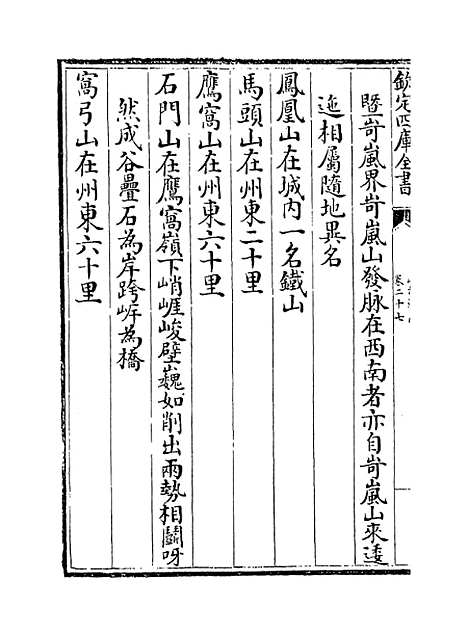 欽定四庫全書
卷二十七
暨岢嵐界岢嵐山發脉在西南者亦自岢嵐山來逶
迤相屬隨地異名
鳳凰山在城內一名鐵山
馬頭山在州東二十里
鷹窩山在州東六十里
石門山在鷹窩嶺下峭崕峻壁巍如削出兩勢相鬭呀
然成谷疊石為岸跨㟁為橋
窩弓山在州東六十里